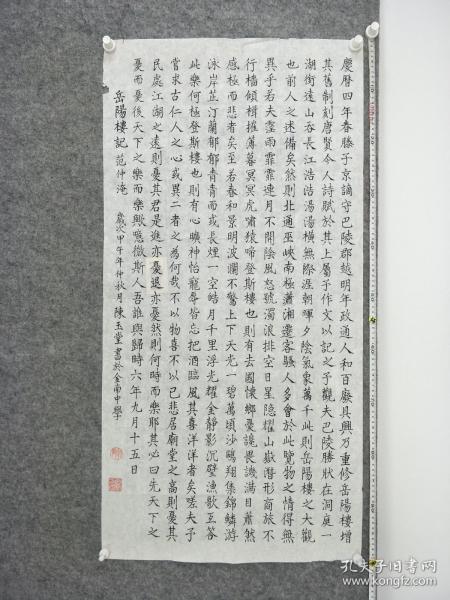 慶曆四年春滕子京謫守巴陵郡越明年政通人和百廢具興乃重修岳陽樓增
其舊制刻唐賢今人詩賦於其上屬予作文以記之予觀夫巴陵勝狀在洞庭一
湖銜遠山吞長江浩浩湯湯橫無際涯朝暉夕陰氣象萬千此則岳陽樓之大觀
也前人之述備矣然則北通巫峽南極瀟湘遷客騷人多會於此覽物之情得無
異乎若夫霪雨霏霏連月不開陰風怒號濁浪排空日星隱耀山嶽潛形商旅不
行檣傾楫摧薄暮冥冥虎嘯猿啼登斯樓也則有去國懷鄉憂讒畏譏滿目蕭然
感極而悲者矣至若春和景明波瀾不驚上下天光一碧萬頃沙鷗翔集錦鱗游
泳岸芷汀蘭郁郁青青而或長煙一空皓月千里浮光耀金靜影沉璧漁歌互答
此樂何極登斯樓也則有心曠神怡寵辱皆忘把酒臨風其喜洋洋者矣嗟夫予
嘗求古仁人之心或異二者之為何哉不以物喜不以己悲居廟堂之高則憂其
民處江湖之遠則憂其君是進亦憂退亦憂然則何時而樂耶其必曰先天下之
憂而憂後天下之樂而樂歟噫微斯人吾誰與歸時六年九月十五日
岳陽樓記 范仲淹 歲次甲午年仲秋月陳玉堂書於金南中學
孔夫子旧书网
www.kongfz.com